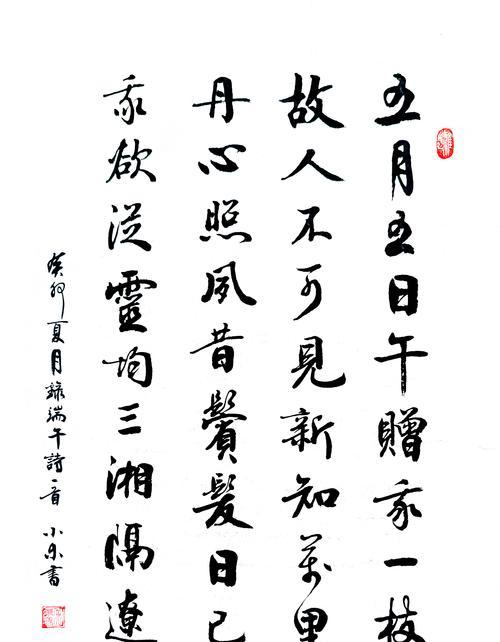 五月五日午贈我一枝
故人不可見新知萬里
丹心照夙昔鬢髮日已
我欲從靈均三湘隔遼
癸卯夏月錄端午詩一首 小書